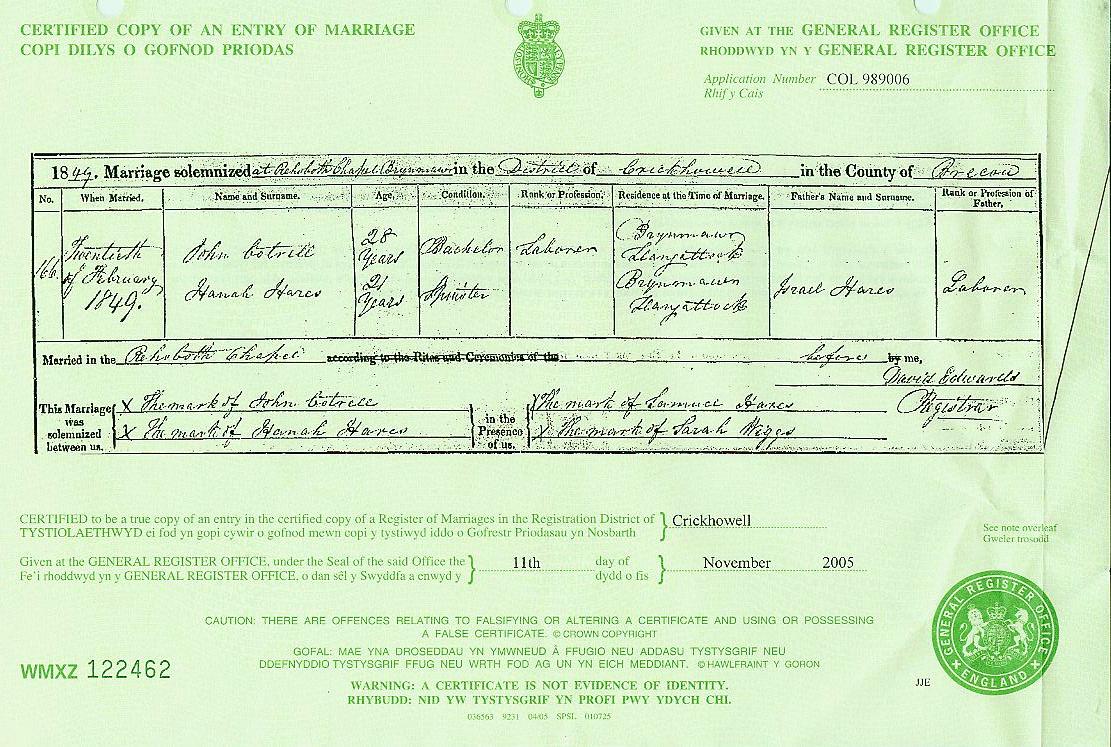 CERTIFIED COPY OF AN ENTRY OF MARRIAGE
COPI DILYS O GOFNOD PRIODAS
GIVEN AT THE GENERAL REGISTER OFFICE
RHODDWYD YN Y GENERAL REGISTER OFFICE
Application Number COL 989006
Rhif y Cais
1849. Marriage solemnized at Rehoboth Chapel Brynmawr in the District of Crickhowell in the County of Brecon
No. When Married. Name and Surname. Age. Condition. Rank or Profession. Residence at the Time of Marriage. Father's Name and Surname. Rank or Profession of Father.
166 Twentieth of February 1849.
John Cotrell 28 Years Bachelor Laborer Brynmawr Llangattock
Hanah Hares 21 Years Spinster Brynmawr Llangattock Israel Hares Laborer
Married in the Rehoboth Chapel according to the Rites and Ceremonies of the before by me,
David Edwards
Registrar
This Marriage was solemnized between us,
X The mark of John Cotrell
X The mark of Hanah Hares
in the Presence of us,
X The mark of Samuel Hares
X The mark of Sarah Wiggs
CERTIFIED to be a true copy of an entry in the certified copy of a Register of Marriages in the Registration District of Crickhowell
TYSTIOLAETHWYD ei fod yn gopi cywir o gofnod mewn copi y tystiwyd iddo o Gofrestr Priodasau yn Nosbarth
See note overleaf
Gweler trosodd
Given at the GENERAL REGISTER OFFICE, under the Seal of the said Office the 11th day of November 2005
Fe'i rhoddwyd yn y GENERAL REGISTER OFFICE, o dan sêl y Swyddfa a enwyd y dydd o fis
CAUTION: THERE ARE OFFENCES RELATING TO FALSIFYING OR ALTERING A CERTIFICATE AND USING OR POSSESSING
A FALSE CERTIFICATE. © CROWN COPYRIGHT
GOFAL: MAE YNA DROSEDDAU YN YMWNEUD Â FFUGIO NEU ADDASU TYSTYSGRIF NEU
DDEFNYDDIO TYSTYSGRIF FFUG NEU WRTH FOD AG UN YN EICH MEDDIANT. © HAWLFRAINT Y GORON
WMXZ 122462
WARNING: A CERTIFICATE IS NOT EVIDENCE OF IDENTITY.
RHYBUDD: NID YW TYSTYSGRIF YN PROFI PWY YDYCH CHI.
036563 9231 04/05 SPSL 010725
JJE
GENERAL REGISTER OFFICE
ENGLAND